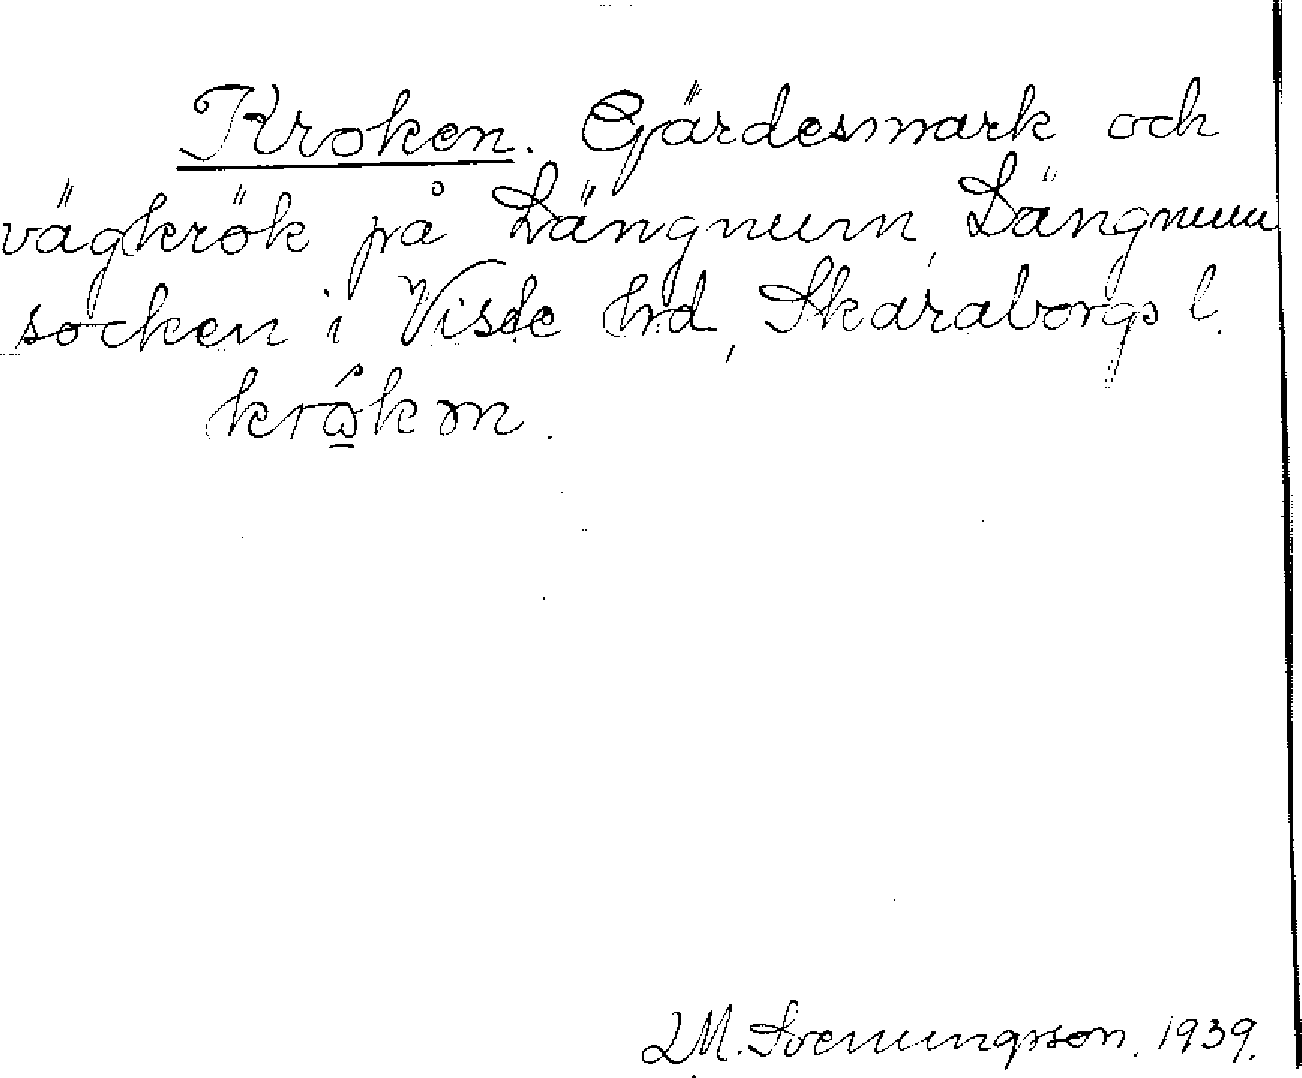 Kroken. Gärdesmark och
vägkrök på Längnum, Längnum
socken i Viste hd, Skaraborgs l.
krώ̲kən.
LM. Svenungsson. 1939.